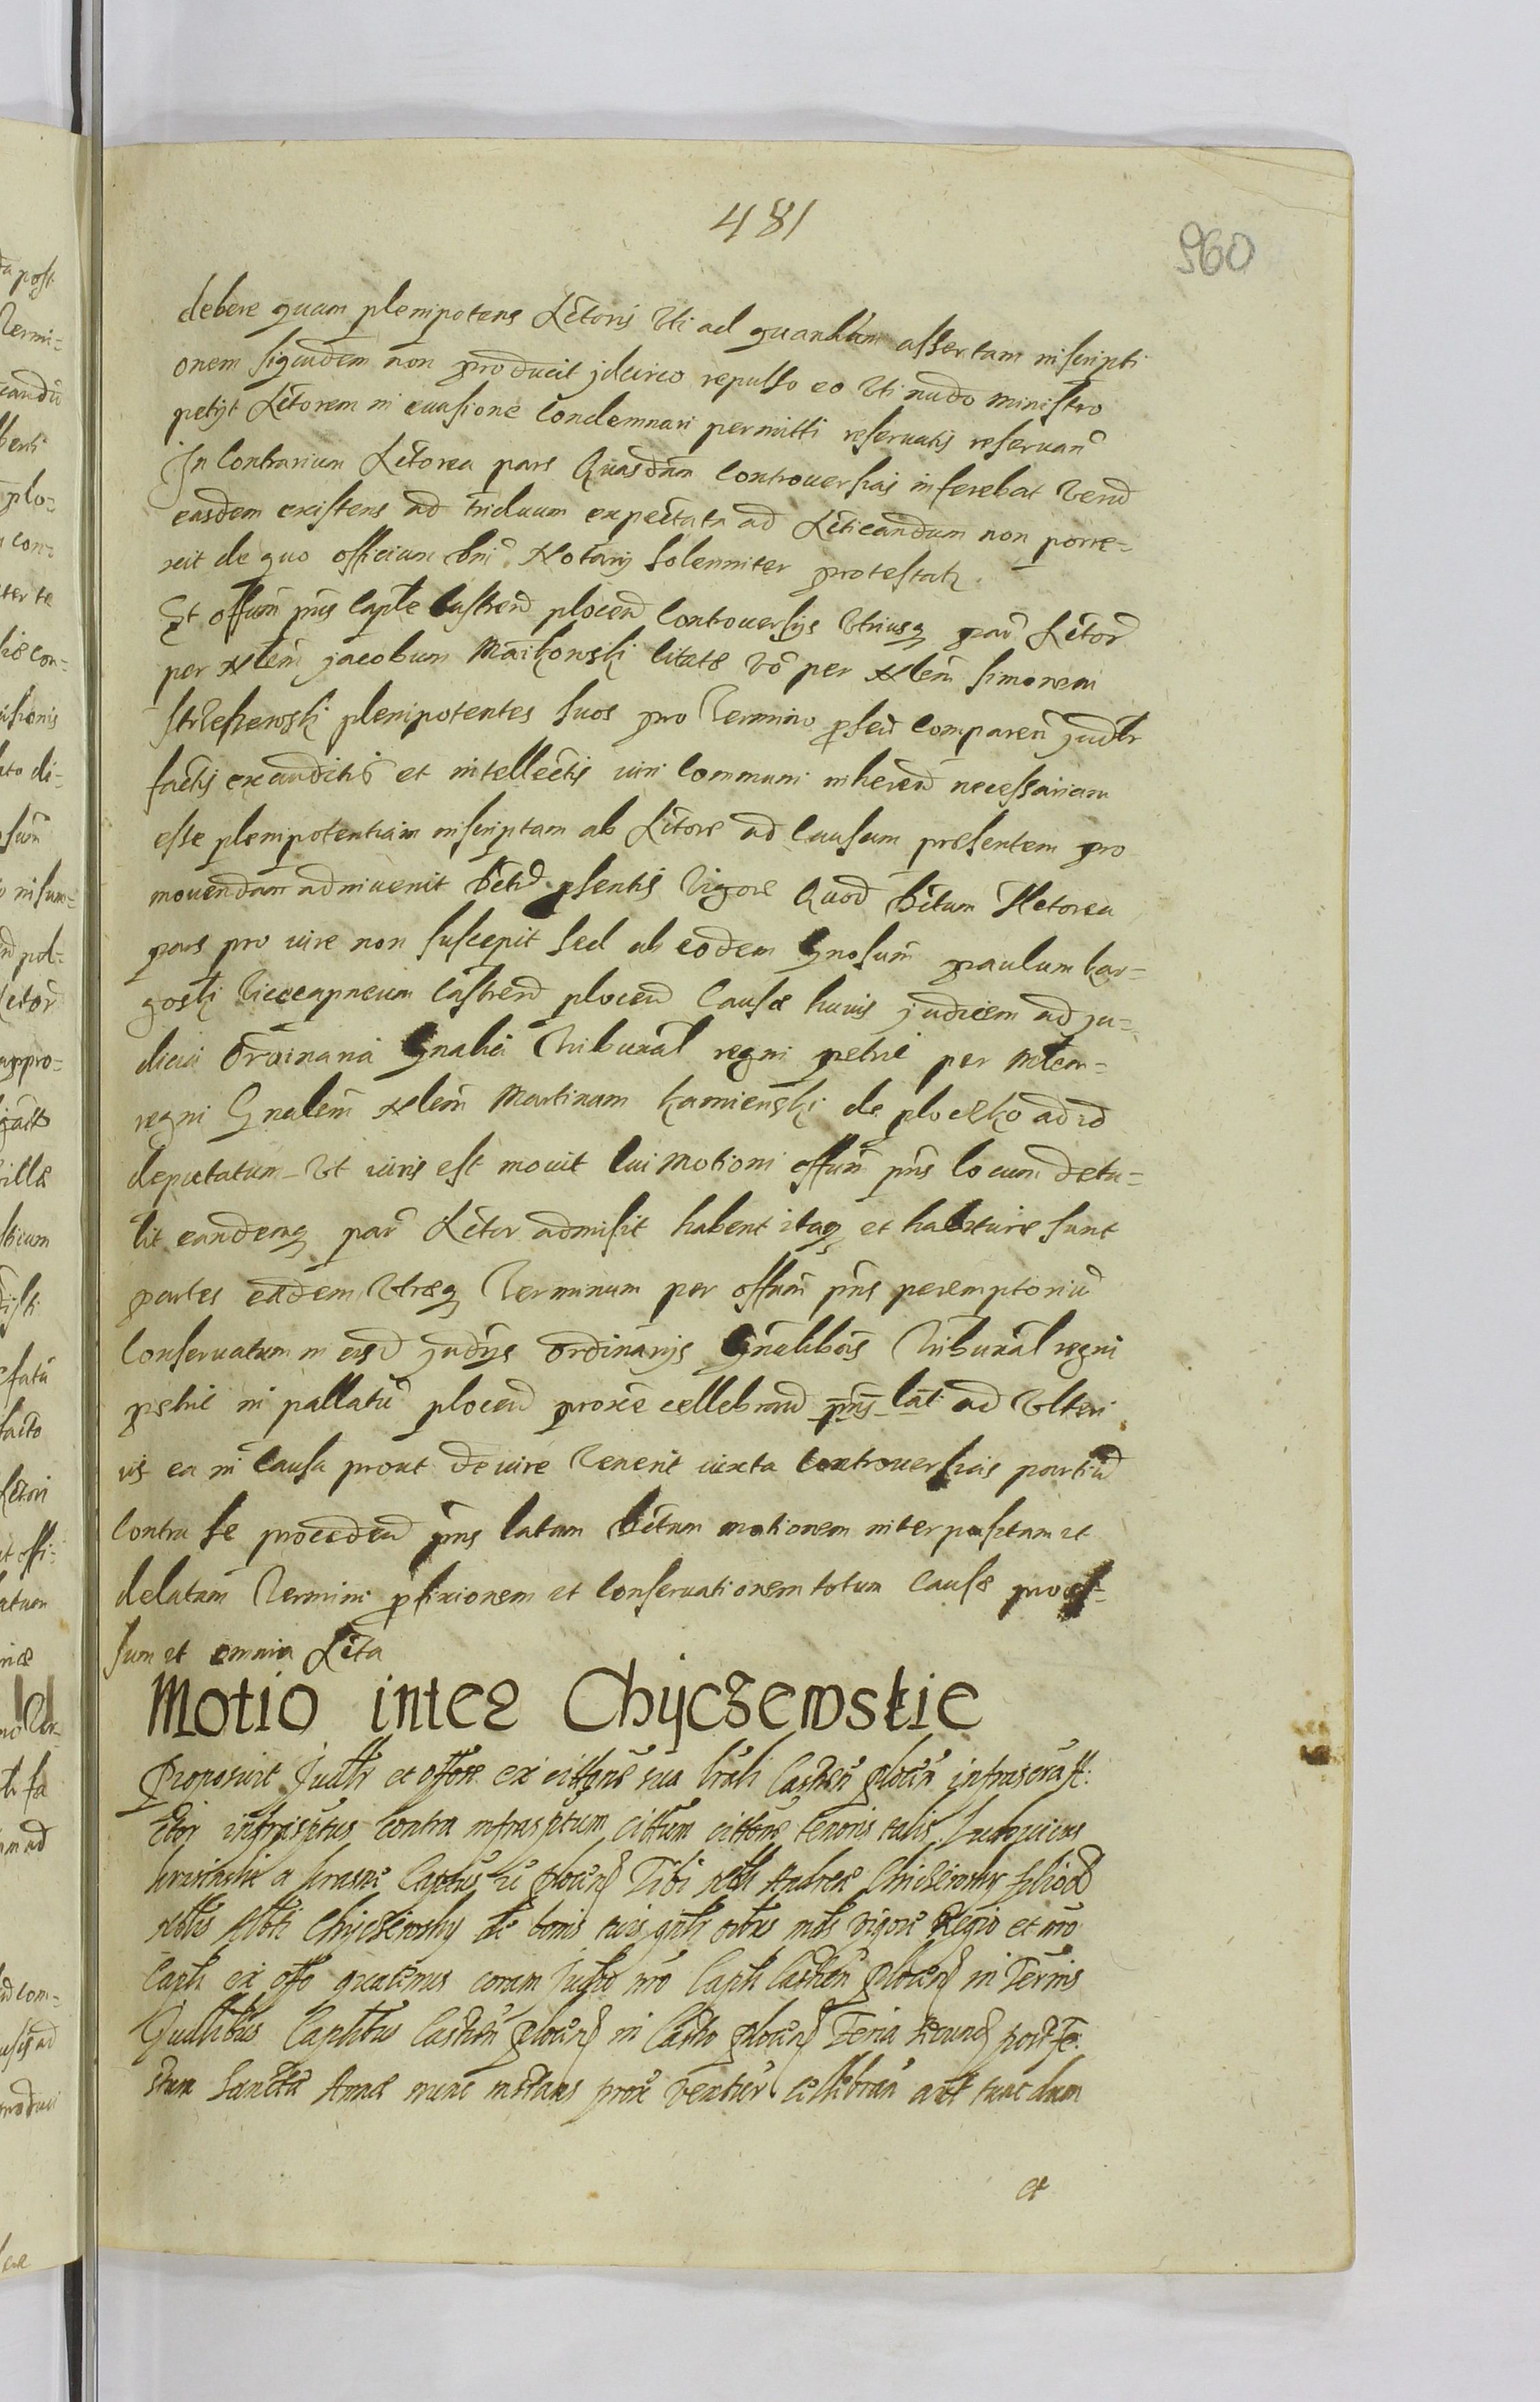 481
960
debere quam plenipotens Actoris Uti ad quandam assertam inscripti
onem siquidem non producit jdcirco repulso eo Uti nudo ministro
petijt Actorem in euasione Condemnari permitti reseruatis reseruan
In Contrarium Actorea pars Quasdam Controuersias inferebat Verum
easdem existens ad triduum expectata ad Acticandum non porre=
xit de quo officium bni Notarij Solenniter protestatr.
Et offum pns Caple Castren plocen Controuersijs Utriusq par Actor
per Nlem jacobum Maikowski Citate Vo per Nlem simonem
plenipotentes suos pro Termino Comparen judlr
factis exauditis et intellectis iuri Communi inheren necessariam
esse plenipotentiam inscriptam ab Actore ad Causam presentem pro
mouendam adinuenit psentis Vigore Quod Actorea
pars pro iure non suscepit sed ab eodem Gnosum paulum kar=
goski Vicecapneum Castren plocen Cause huius judicem ad ju=
dicia Ordinaria Gnalia Tribunal regni petric per
regni Gnalem Nlem Martinum kamienski de plocsko ad id
deputatum Ut iuris est mouit Cui Motioni offum pns locum detu=
lit eandemq par Actor admisit habent itaq et habiture sunt
partes eadem Utraeq Terminum per offum pns peremptorium
Conseruatum in eisd judijs Ordinarijs Gnalibus Tribunal regni
petric in pallatio plocen proxe cellebrand pns lat ad Ulteri
us ea in Causa prout de iure Venerit iuxta Controuersias partium
Contra se proceden pns latam motionem interpositam et
delatam Termini pfixionem et Conseruationem totum Cause proces=
sum et omnia Acta
Motio inter Chijczewskie
Proposuit Judlr et offose ex citthone sua Castren plocen infrascrapt:
Actor infrasptus Contra infrasptum cittum cittone tenoris talis. Ludouicus
krasinski a krasne Capneus plocen Tibi Nbli Andree Chiczewsky filio
Nblis Chijczewsky de bonis tuis gnlr oibus mds Vigore Regio et nro
Capli ex offo quatenus coram Judio nro Capli Castren plocen in Termis
Judlibus Caplibus Castren plocen in Castro plocen Feria secund post Fe:
stum Sanctae Annae nunc instans prox Ventur cellebran aut tunc dum
et